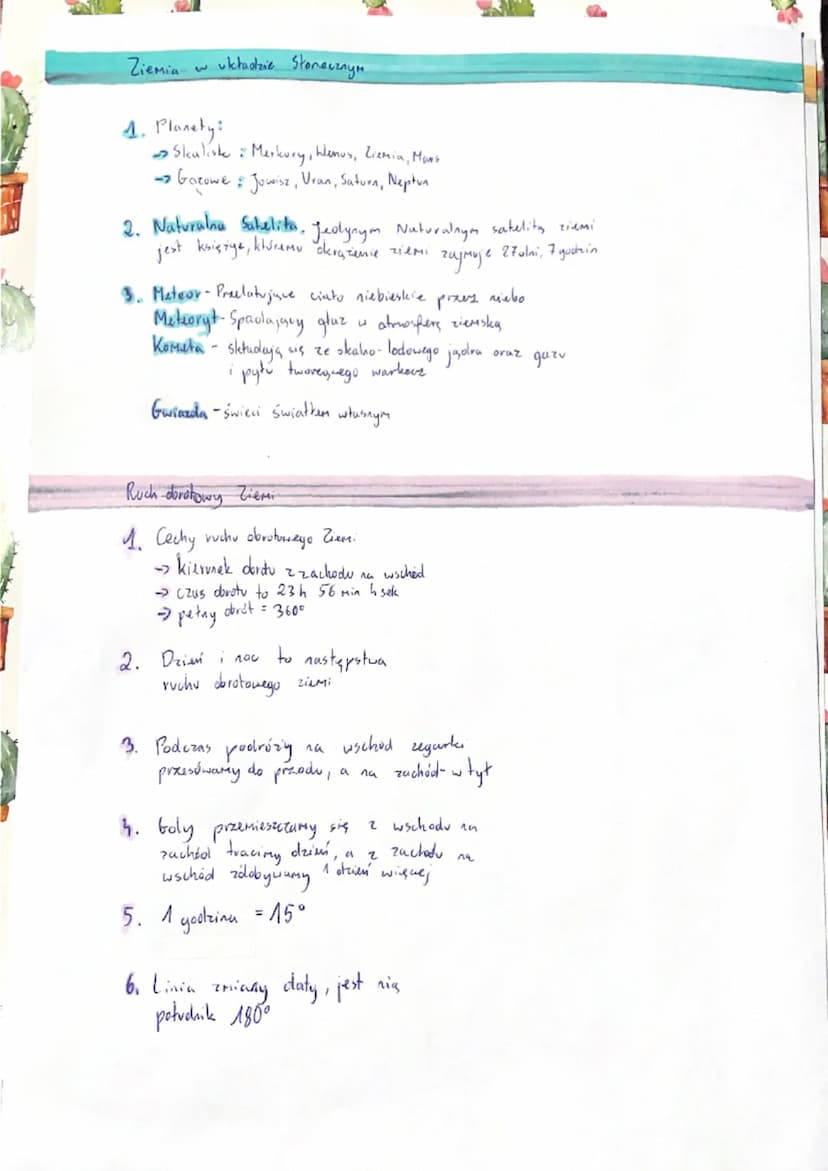 Ziemia w układzie Słonecznym
1. Planety:
→ Skaliste : Merkury, Wenus, Ziemia, Mars
→ Gazowe : Jowisz, Uran, Saturn, Neptun
2. Naturalna Satelita. Jedynym Naturalnym satelitą ziemi
jest księżyc, któremu okrążenie ziemi zajmuje 27 dni, 7 godzin
3. Meteor - Przelatujące ciało niebieskie przez niebo
Meteoryt - Spadający głaz w atmosferę ziemską
Kometa - składają się ze skalno-lodowego jądra oraz gazu
i pyłu tworzącego warkocz
Gwiazda - świeci światłem własnym
Ruch obrotowy Ziemi
1. Cechy ruchu obrotowego Ziemi
→ kierunek obrotu z zachodu na wschód
→ czas obrotu to 23h 56 min 4 sek
→ pełny obrót = 360°
2. Dzień i noc to następstwa
ruchu obrotowego ziemi
3. Podczas podróży na wschód zegarki
przesówamy do przodu, a na zachód - w tył
4. Gdy przemieszczamy się z wschodu na
zachód tracimy dzień, a z zachodu na
wschód zdobywamy 1 dzień więcej
5. 1 godzina = 15°
6. Linia zmiany daty, jest nią
południk 180°